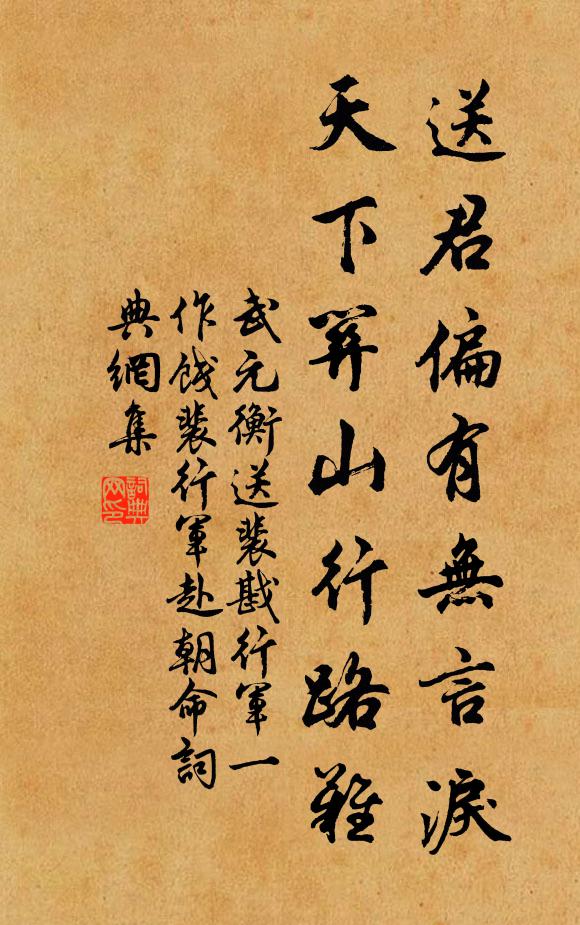 送君偏有無言淚
天下關山行路難
武元衡送裴戡行軍一
作餞裴行軍赴朝命詞
典網集
詞典
网印